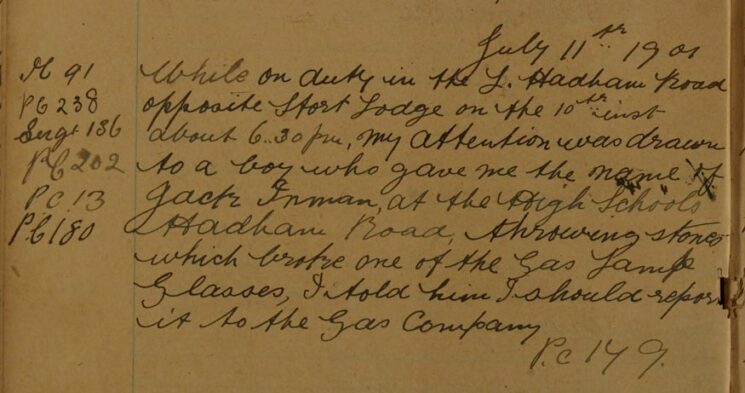 July 11th 1901
M 91
PC 238
Sergt 136
PC 202
PC 13
PC 180
While on duty in the L. Hadham Road
opposite Stort Lodge on the 10th inst
about 6.30 pm, my attention was drawn
to a boy who gave me the name of
Jack Inman, at the High Schools
Hadham Road, throwing stones
which broke one of the Gas Lamp
Glasses, I told him I should report
it to the Gas Company
P.c 149.